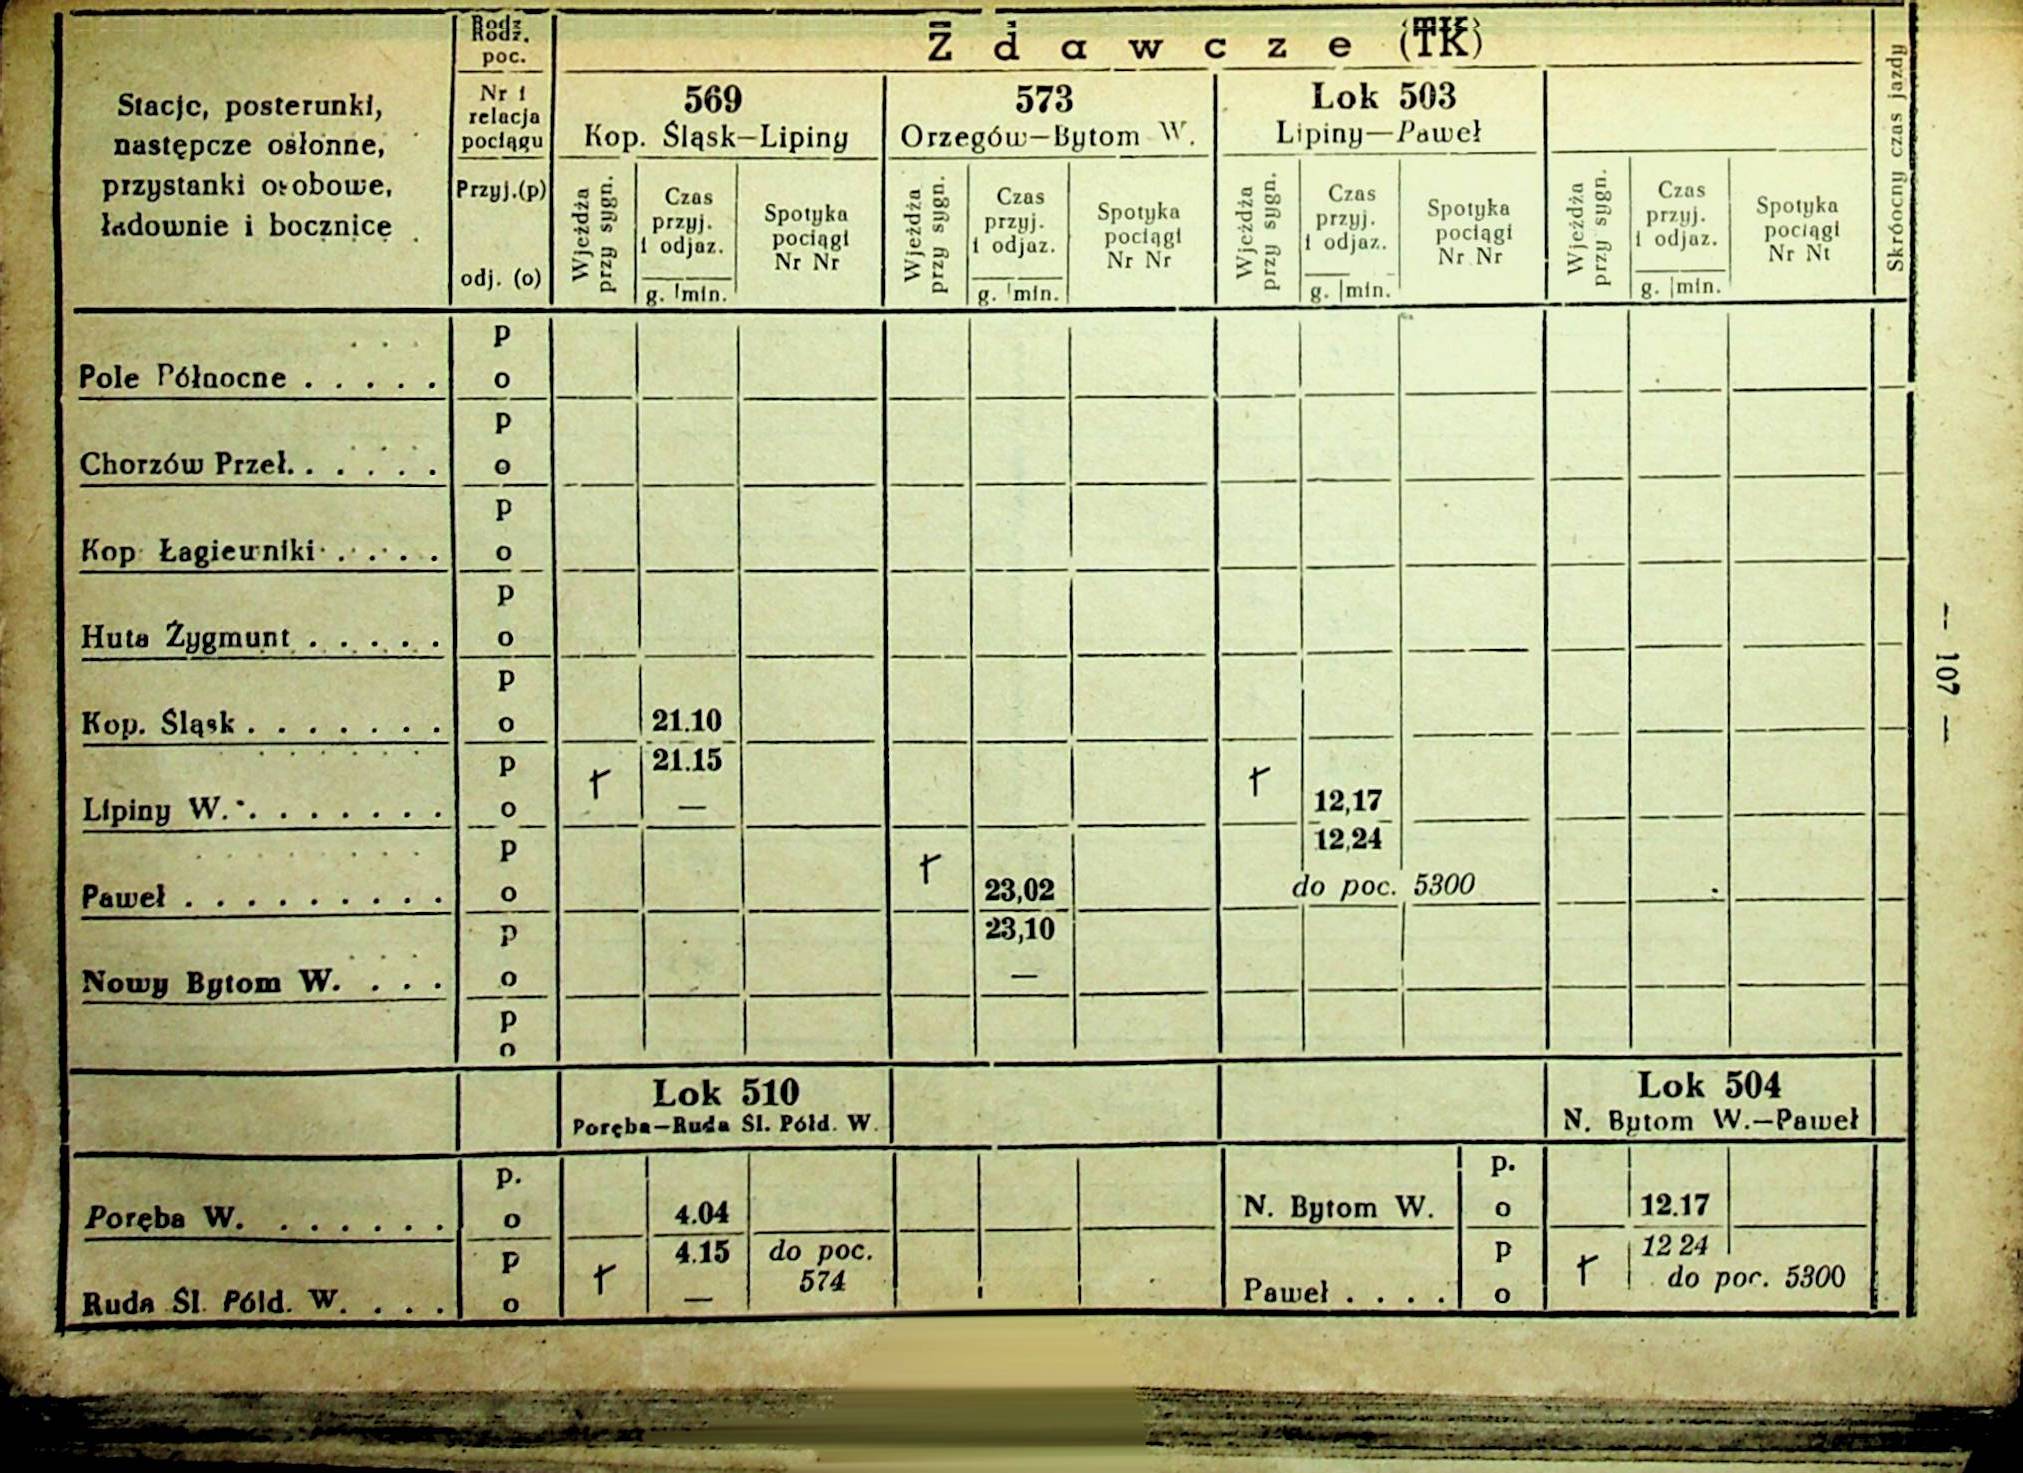 Rodz. poc.
Zdawcze (TK)
Stacje, posterunki, następcze osłonne, przystanki osobowe, ładownie i bocznice
Nr i relacja pociągu
569
Kop. Śląsk—Lipiny
573
Orzegów—Bytom W.
Lok 503
Lipiny—Paweł
Skróocny czas jazdy
Przyj.(p)
odj. (o)
Wjeżdża przy sygn.
Czas przyj. i odjaz.
g. min.
Spotyka pociągi Nr Nr
Wjeżdża przy sygn.
Czas przyj. i odjaz.
g. min.
Spotyka pociągi Nr Nr
Wjeżdża przy sygn.
Czas przyj. i odjaz.
g. min.
Spotyka pociągi Nr Nr
Wjeżdża przy sygn.
Czas przyj. i odjaz.
g. min.
Spotyka pociągi Nr Nt
p
Pole Północne . . . . . o
p
Chorzów Przeł. . . . . . o
p
Kop Łagiewniki . . . . o
p
Huta Zygmunt . . . . . o
p
Kop. Śląsk . . . . . . . o 21.10
p † 21.15 †
Lipiny W. . . . . . . . o — 12,17
p † 12,24
Paweł . . . . . . . . . o 23,02 do poc. 5300
p 23,10
Nowy Bytom W. . . . o —
p
o
Lok 510
Poręba—Ruda Śl. Płd. W.
Lok 504
N. Bytom W.—Paweł
p. p.
Poręba W. . . . . . . o 4.04 N. Bytom W. o 12.17
p † 4.15 do poc. 574 p † 12 24
Ruda Śl. Półd. W. . . . o — Paweł . . . . o do poc. 5300
— 107 —